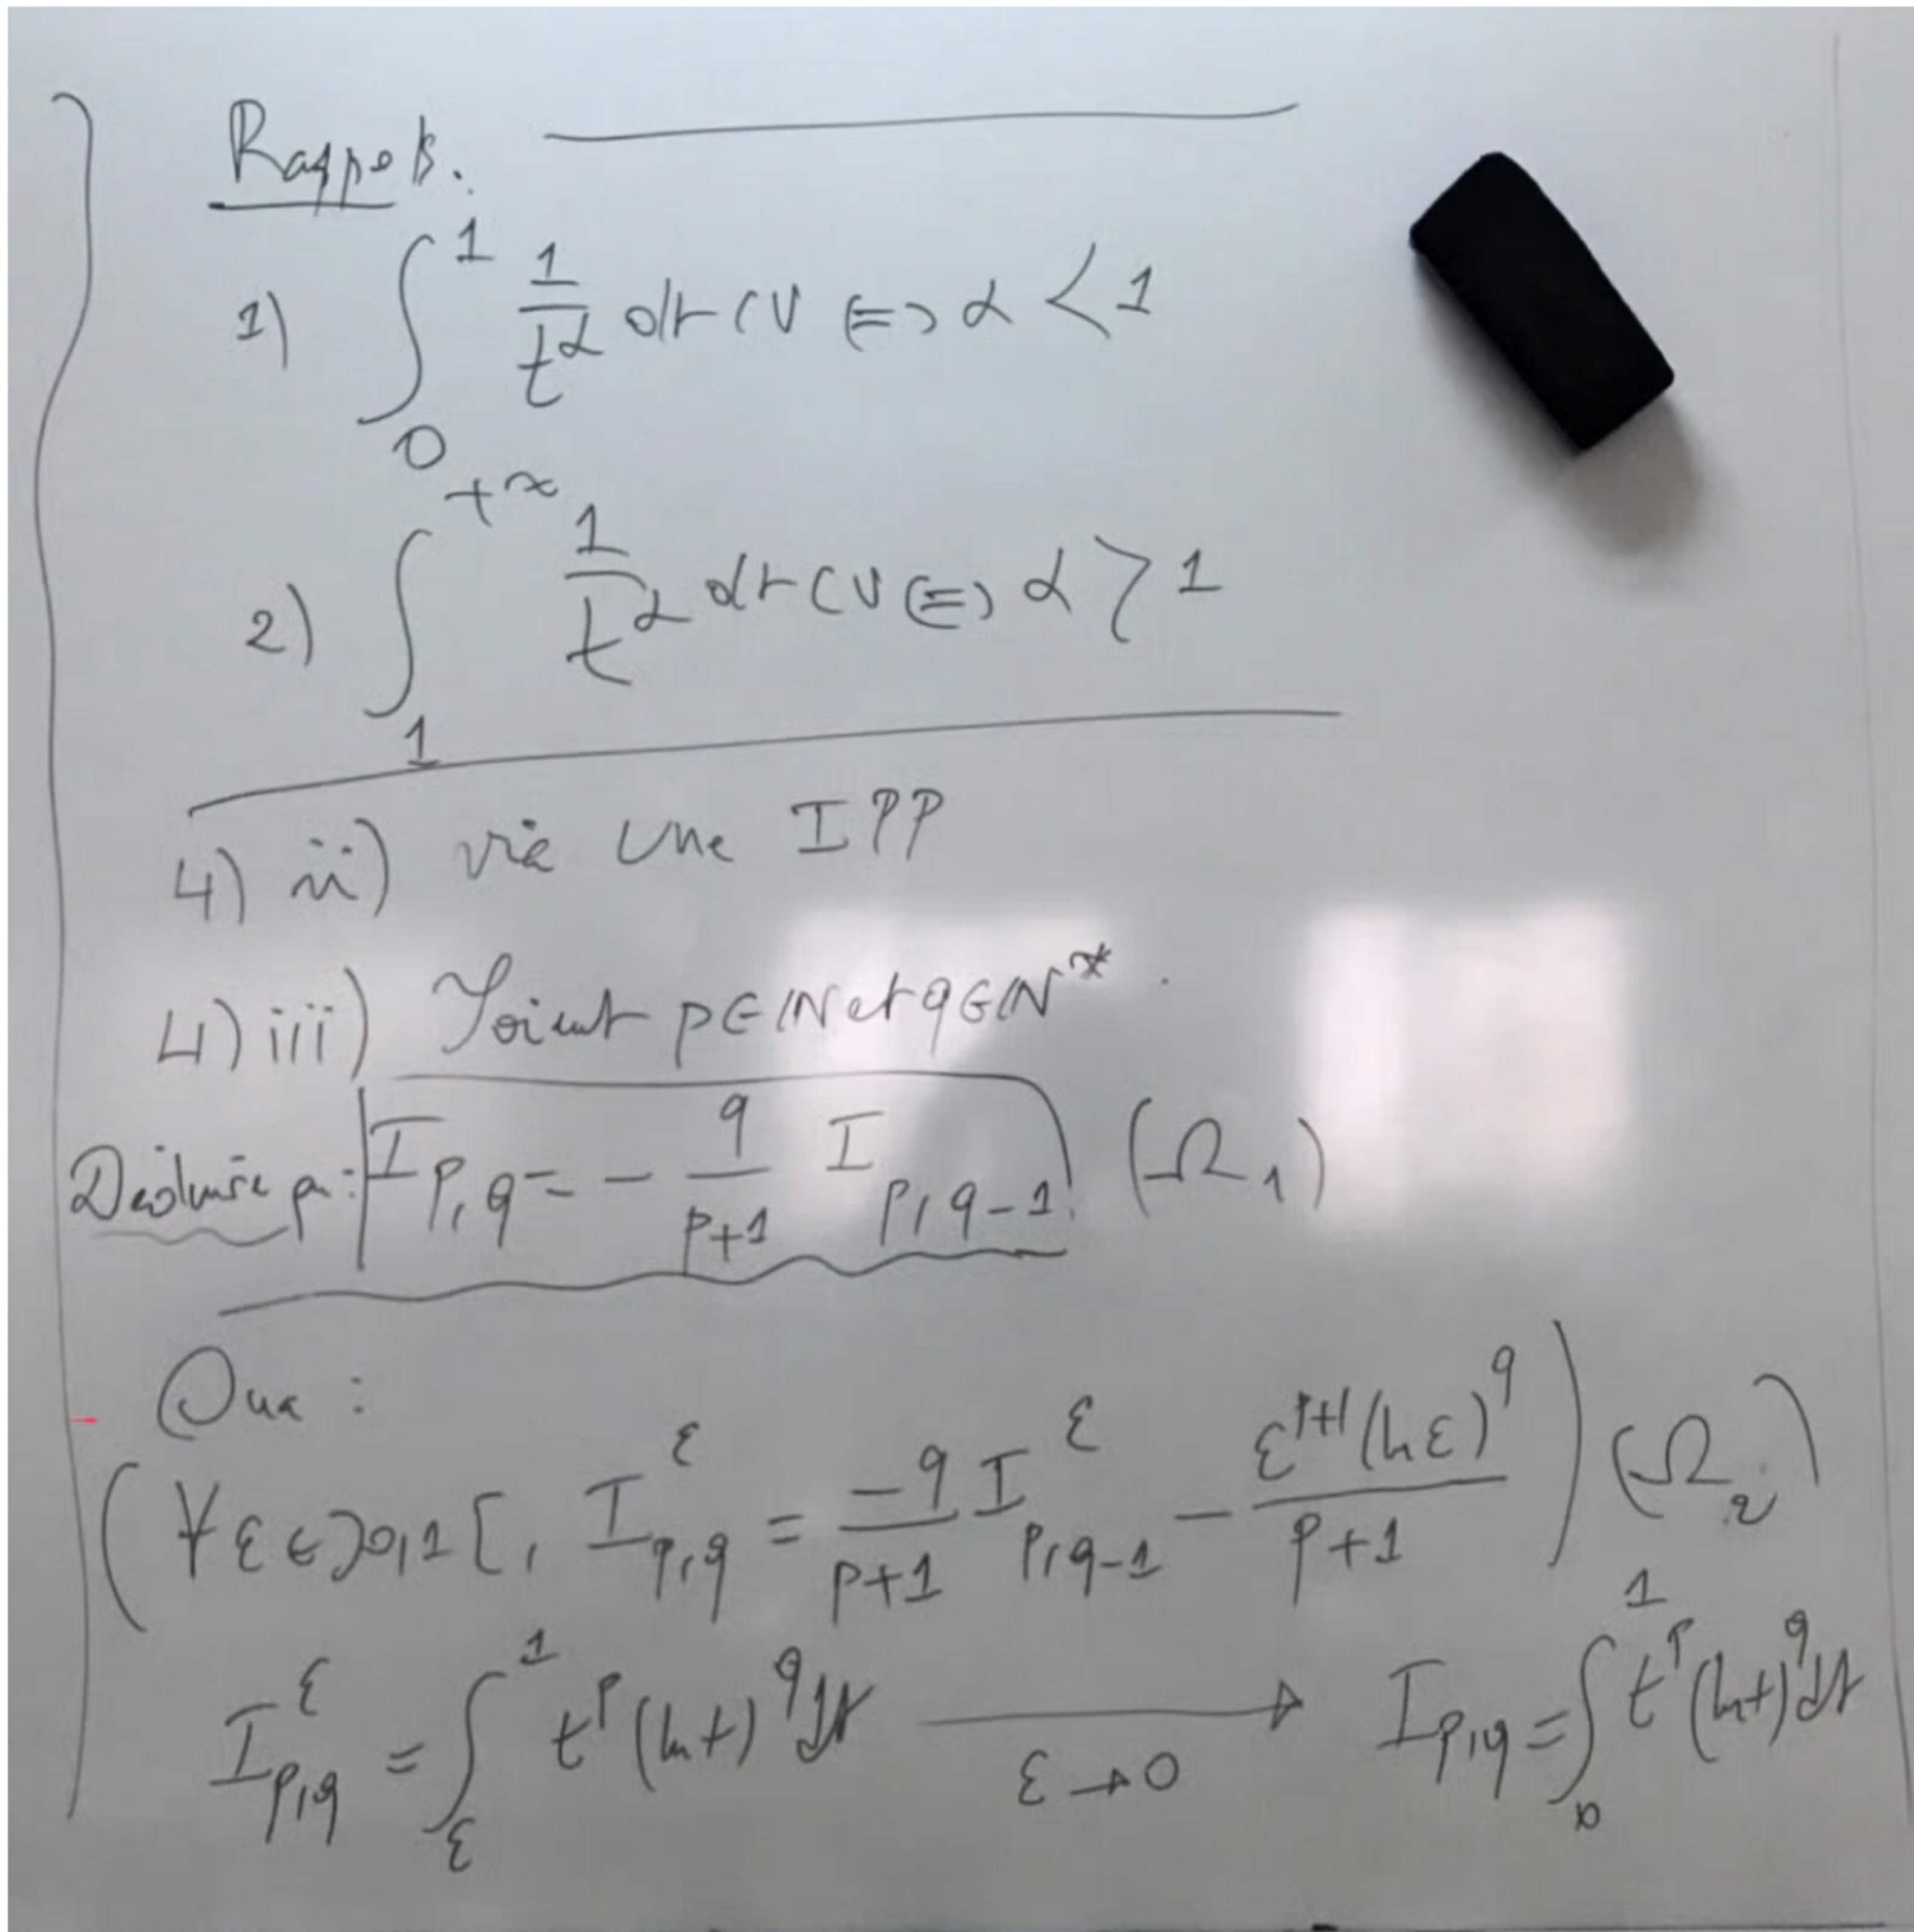 Rappels.
1) ∫_0^1 1/t^α dt CV ⇔ α < 1
2) ∫_1^{+∞} 1/t^α dt CV ⇔ α > 1
4) ii) via une IPP
4) iii) Soient p ∈ ℕ et q ∈ ℕ*.
I_{p,q} = - q/(p+1) I_{p,q-1} (Ω_1)
On a :
(∀ε ∈ ]0,1[, I^ε_{p,q} = -q/(p+1) I^ε_{p,q-1} - ε^{p+1}(ln ε)^q/(p+1)) (Ω_2)
I^ε_{p,q} = ∫_ε^1 t^p (ln t)^q dt ⟶_{ε→0} I_{p,q} = ∫_0^1 t^p (ln t)^q dt